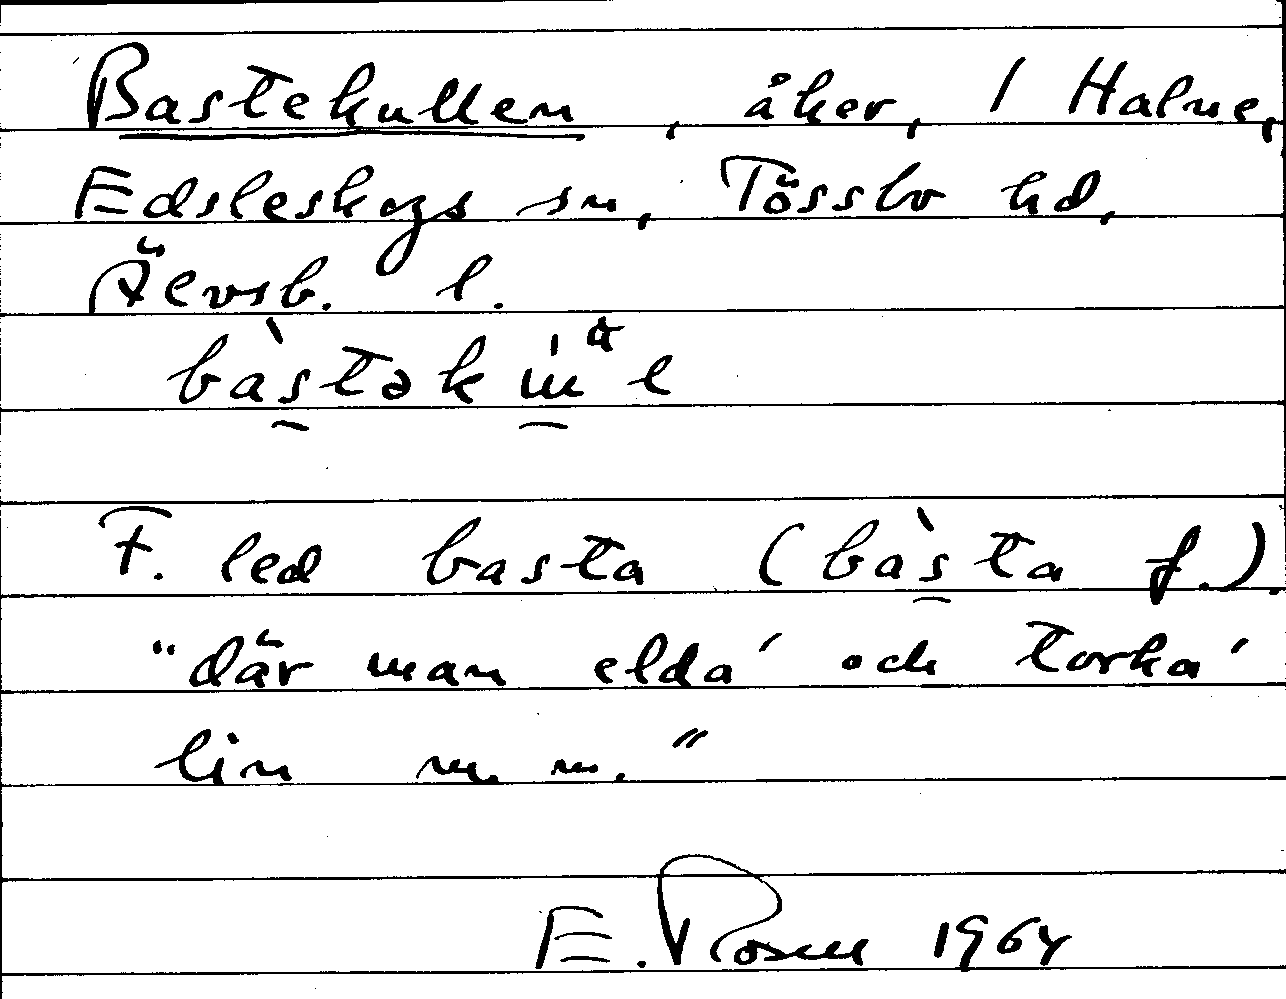 Bastekullen, åker, 1 Halne,
Edsleskogs sn, Tössbo hd,
Älvsb. l.
F. led basta (bàsta f.).
"där man elda' och torka'
lin m. m."
E. Rosell 1964